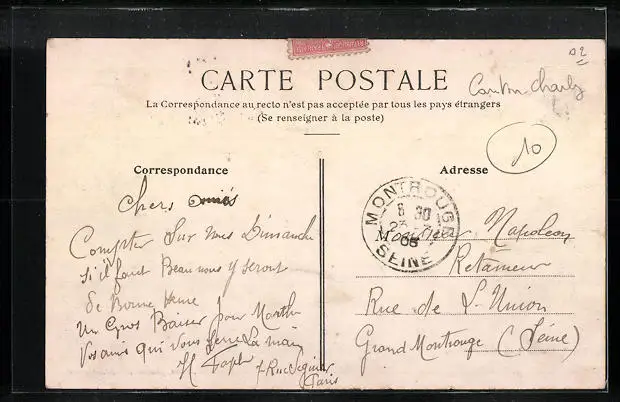 02
CARTE POSTALE
Canton Charly
La Correspondance au recto n'est pas acceptée par tous les pays étrangers
(Se renseigner à la poste)
10
Correspondance
Adresse
MONTROUGE
8 30
23
08
SEINE
Chers amiés
Compter sur nous Dimanche
s'il fait Beau nous y seront
de Bonne Heure
un Gros Baiser pour Marthe
Vos amis qui vous serre La main
H
7 Rue Séguier
Paris
Monsieur Napoleon
Retameur
Rue de St Union
Grand Montrouge (Seine)